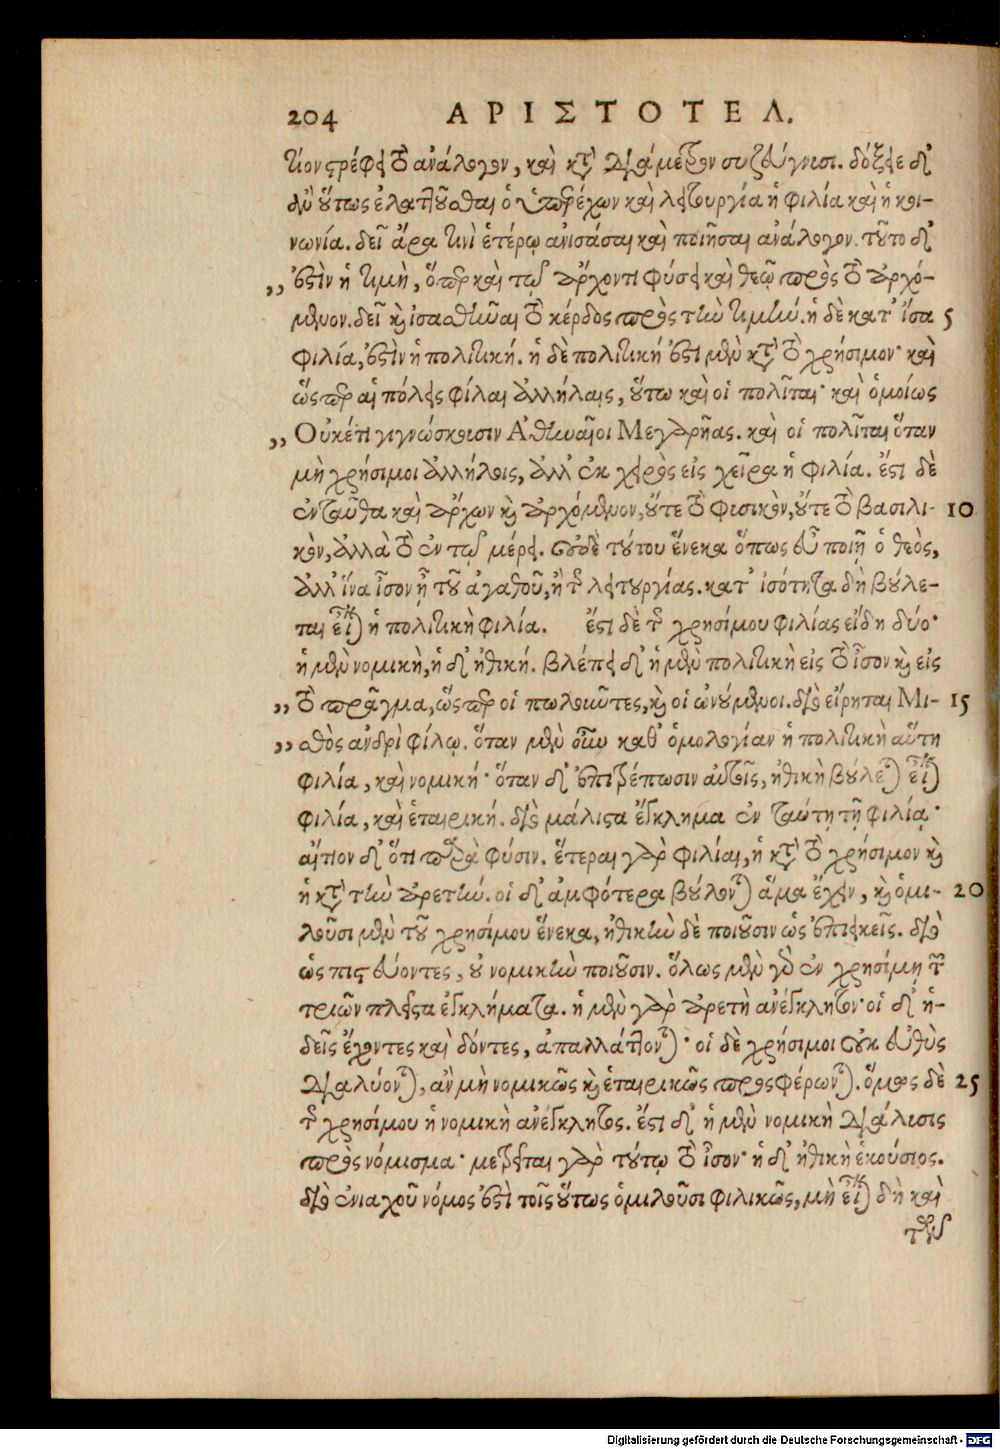 204 ΑΡΙΣΤΟΤΕΛ.
τιονστρέφει τὸ ἀνάλογον, καὶ κτ' διάμετρον συζεύγνυσι. δόξειε δ'
ἂν οὕτως ἐλαττοῦσθαι ὁ ὑπερέχων καὶ λειτουργία ἡ φιλία καὶ ἡ κοι-
νωνία. δεῖ ἄρα τινὶ ἑτέρῳ ἀνισάσαι καὶ ποιῆσαι ἀνάλογον. τοῦτο δ'
,, ἐστὶν ἡ τιμὴ, ὅπερ καὶ τῷ ἄρχοντι φύσει καὶ θεῷ πρὸς τὸ ἀρχό-
μενον. δεῖ καὶ ἰσασθῆναι τὸ κέρδος πρὸς τὴν τιμήν. ἡ δὲ κατ' ἴσα 5
φιλία, ἐστὶν ἡ πολιτική. ἡ δὲ πολιτική ἐστι μὲν κτ' τὸ χρήσιμον· καὶ
ὥσπερ αἱ πόλεις φίλαι ἀλλήλαις, οὕτω καὶ οἱ πολῖται· καὶ ὁμοίως
,, Οὐκέτι γιγνώσκουσιν Ἀθηναῖοι Μεγαρῆας. καὶ οἱ πολῖται ὅταν
μὴ χρήσιμοι ἀλλήλοις, ἀλλ' ἐκ χειρὸς εἰς χεῖρα ἡ φιλία. ἔστι δὲ
ἐνταῦθα καὶ ἄρχων καὶ ἀρχόμενον, οὔτε τὸ φισικὸν, οὔτε τὸ βασιλι- 10
κὸν, ἀλλὰ τὸ ἐν τῷ μέρει. οὐδὲ τούτου ἕνεκα ὅπως εὖ ποιῇ ὁ θεὸς,
ἀλλ' ἵνα ἴσον ᾖ τοῦ ἀγαθοῦ, ἢ τῆς λειτουργίας. κατ' ἰσότητα δὴ βούλε-
ται εἶναι ἡ πολιτικὴ φιλία. ἔστι δὲ τῆς χρησίμου φιλίας εἴδη δύο·
ἡ μὲν νομικὴ, ἡ δ' ἠθική. βλέπει δ' ἡ μὲν πολιτικὴ εἰς τὸ ἴσον καὶ εἰς
,, τὸ πρᾶγμα, ὥσπερ οἱ πωλοῦντες, καὶ οἱ ὠνούμενοι. διὸ εἴρηται Μι- 15
,, σθὸς ἀνδρὶ φίλῳ. ὅταν μὲν οὖν καθ' ὁμολογίαν ἡ πολιτικὴ αὕτη
φιλία, καὶ νομική· ὅταν δ' ἐπιτρέπωσιν αὐτοῖς, ἠθικὴ βούλεται εἶναι
φιλία, καὶ ἑταιρική. διὸ μάλιστα ἔγκλημα ἐν ταύτῃ τῇ φιλίᾳ·
αἴτιον δ' ὅτι παρὰ φύσιν. ἕτεραι γὰρ φιλίαι, ἡ κτ' τὸ χρήσιμον καὶ
ἡ κτ' τὴν ἀρετήν. οἱ δ' ἀμφότερα βούλονται ἅμα ἔχειν, καὶ ὁμι- 20
λοῦσι μὲν τοῦ χρησίμου ἕνεκα, ἠθικὴν δὲ ποιοῦσιν ὡς ἐπιεικεῖς. διὸ
ὡς πιστεύοντες, οὐ νομικὴν ποιοῦσιν. ὅλως μὲν γὰρ ἐν χρησίμῃ τῶν
τριῶν πλεῖστα ἐγκλήματα. ἡ μὲν γὰρ ἀρετὴ ἀνέγκλητον· οἱ δ' ἡ-
δεῖς ἔχοντες καὶ δόντες, ἀπαλλάττονται· οἱ δὲ χρήσιμοι οὐκ εὐθὺς
διαλύονται, ἂν μὴ νομικῶς καὶ ἑταιρικῶς προσφέρωνται. ὅμως δὲ 25
τῆς χρησίμου ἡ νομικὴ ἀνέγκλητος. ἔστι δ' ἡ μὲν νομικὴ διάλισις
πρὸς νόμισμα· μετρεῖται γὰρ τούτῳ τὸ ἴσον· ἡ δ' ἠθικὴ ἑκούσιος.
διὸ ἐνιαχοῦ νόμος ἐστὶ τοῖς οὕτως ὁμιλοῦσι φιλικῶς, μὴ εἶναι δὴ καὶ
Digitalisierung gefördert durch die Deutsche Forschungsgemeinschaft - DFG